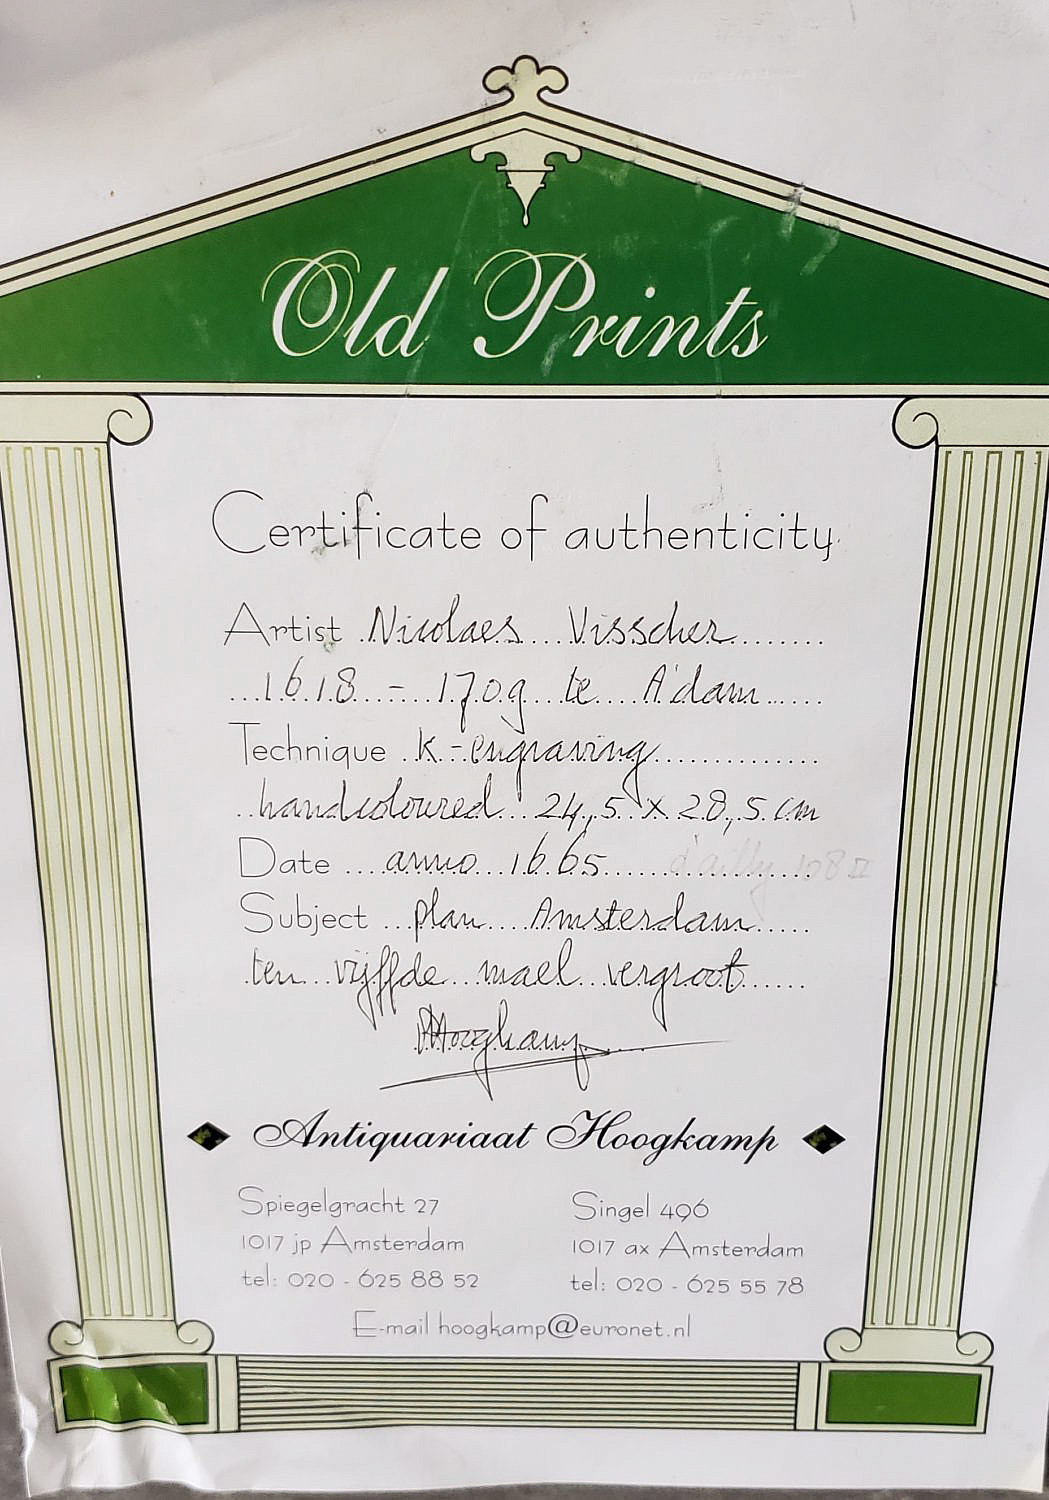 Old Prints
Certificate of authenticity
Artist Nicolaes Visscher
1618 - 1709 te A'dam
Technique K-engraving
handcoloured 24,5 x 28,5 cm
Date anno 1665 d'ailly 108 II
Subject plan Amsterdam
ten vijffde mael vergroot
Hoogkamp
Antiquariaat Hoogkamp
Spiegelgracht 27 Singel 496
1017 jp Amsterdam 1017 ax Amsterdam
tel: 020 - 625 88 52 tel: 020 - 625 55 78
E-mail hoogkamp@euronet.nl